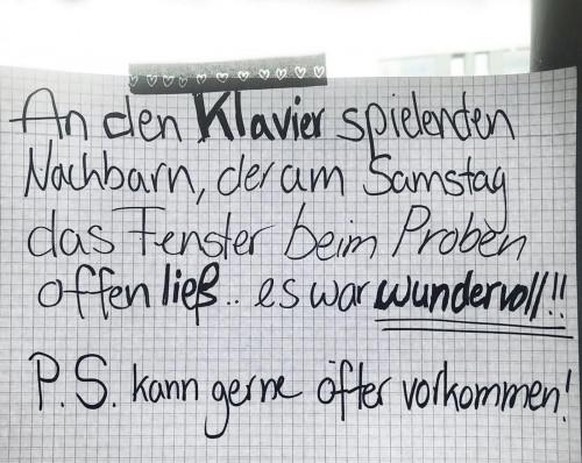 An den Klavier spielenden
Nachbarn, der am Samstag
das Fenster beim Proben
offen ließ.. es war wundervoll!!
P.S. kann gerne öfter vorkommen!